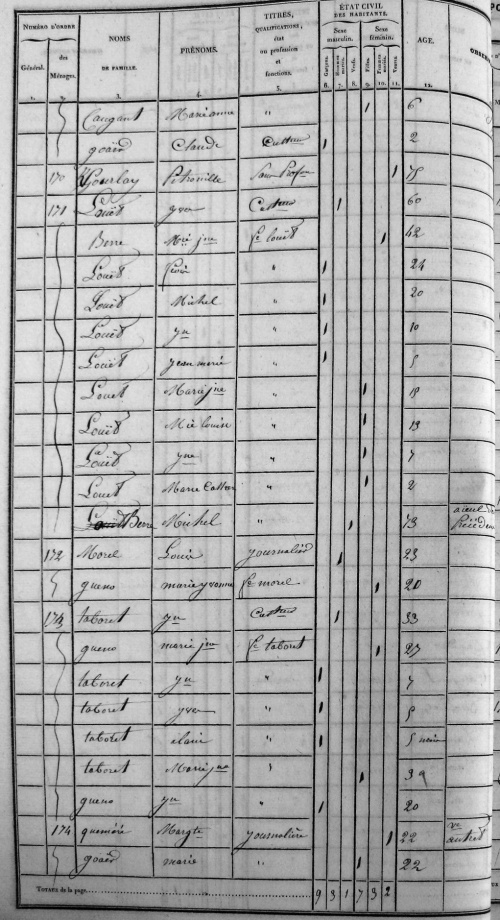 NUMÉRO D'ORDRE
Général.
des Ménages.
NOMS
DE FAMILLE.
PRÉNOMS.
TITRES,
QUALIFICATIONS,
état
ou profession
et
fonctions.
ÉTAT CIVIL
DES HABITANTS.
Sexe masculin.
Sexe féminin.
Garçons.
Hommes mariés.
Veufs.
Filles.
Femmes mariées.
Veuves.
AGE.
1. 2. 3. 4. 5. 6. 7. 8. 9. 10. 11. 12.
Caugant Marianne " 1 6
goaër Claude 1 2
170 Gourlay Pétronille Sans 1 75
171 Louët yves 1 60
Berre Mie jne fe louët 1 42
Louët " 1 24
Louët Michel " 1 20
Louët yn " 1 10
Louët jean marie " 1 5
Louet Marie jne " 1 18
Louët Mie louise " 1 13
Louët yne " 1 7
Louet Marie " 1 2
Berre Michel " 1 73 aieul
172 Morel Louis journalier 1 23
gueno marie yvonne fe morel 1 20
173 taboret yn 1 33
gueno marie jne fe taboret 1 27
taboret yn " 1 7
taboret yves " 1 5
taboret alain " 1 5 mois
taboret Marie jne " 1 3
gueno yn " 1 20
174 quemére Margte journalière 1 22 ve
goaër marie " 1 22
TOTAUX de la page. 9 3 1 7 3 2